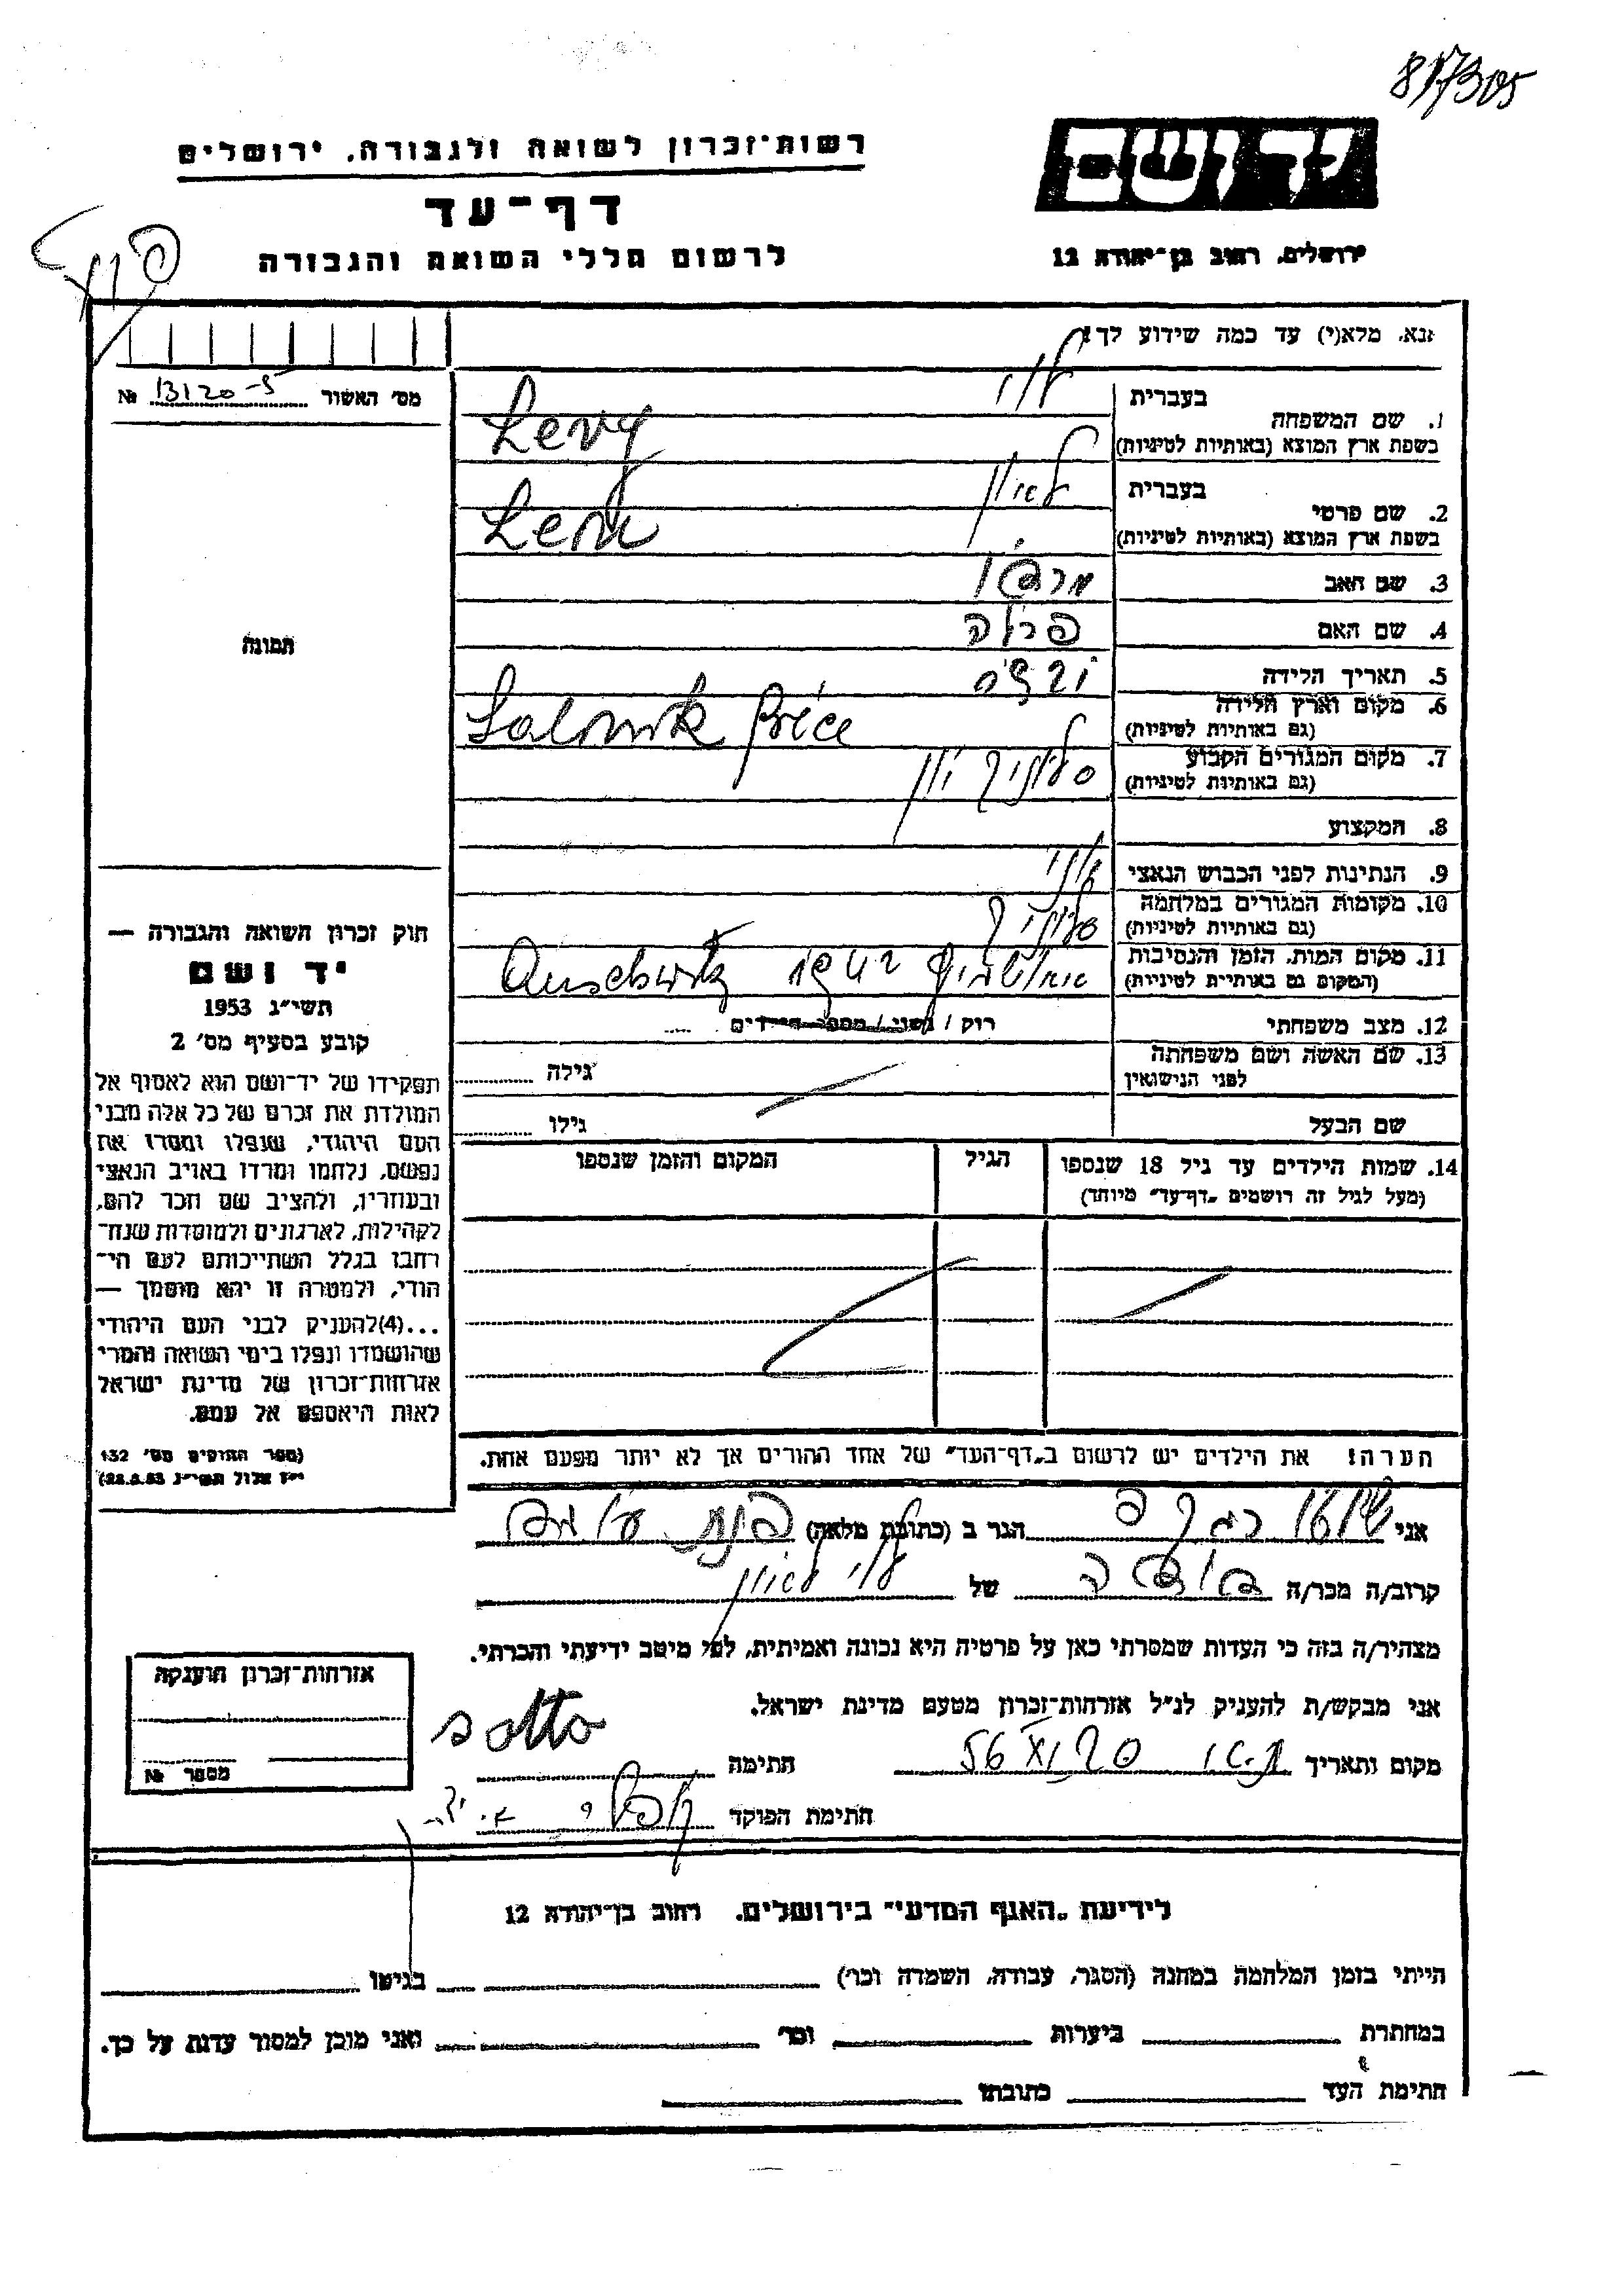 רשות־זכרון לשואה ולגבורה, ירושלים
דף־עד
לרשום חללי השואה והגבורה
יד ושם
ירושלים, רחוב בן־יהודה 12
נא, מלא(י) עד כמה שידוע לך!
מס' האשור № 13120-5
1. שם המשפחה
בעברית לוי
בשפת ארץ המוצא (באותיות לטיניות) Levy
2. שם פרטי
בעברית ליאון
בשפת ארץ המוצא (באותיות לטיניות)
3. שם האב
4. שם האם
5. תאריך הלידה
6. מקום וארץ הלידה
(גם באותיות לטיניות) Salonik Grèce
7. מקום המגורים הקבוע
(גם באותיות לטיניות) סלוניק יון
8. המקצוע
9. הנתינות לפני הכבוש הנאצי יוני
10. מקומות המגורים במלחמה
(גם באותיות לטיניות) סלוניק
11. מקום המות, הזמן והנסיבות
(המקום גם באותיות לטיניות) אושוויץ
12. מצב משפחתי רוק / נשוי / מספר הילדים
13. שם האשה ושם משפחתה
לפני הנישואין
גילה
שם הבעל
גילו
14. שמות הילדים עד גיל 18 שנספו
(מעל לגיל זה רושמים „דף־עד" מיוחד)
הגיל
המקום והזמן שנספו
הערה! את הילדים יש לרשום ב„דף־העד" של אחד ההורים אך לא יותר מפעם אחת.
תמונה
חוק זכרון השואה והגבורה —
יד ושם
תשי"ג 1953
קובע בסעיף מס' 2
תפקידו של יד־ושם הוא לאסוף אל
המולדת את זכרם של כל אלה מבני
העם היהודי, שנפלו ומסרו את
נפשם, נלחמו ומרדו באויב הנאצי
ובעוזריו, ולהציב שם וזכר להם,
לקהילות, לארגונים ולמוסדות שנח־
רבו בגלל השתייכותם לעם הי־
הודי, ולמטרה זו יהא מוסמך —
...(4)להעניק לבני העם היהודי
שהושמדו ונפלו בימי השואה והמרי
אזרחות־זכרון של מדינת ישראל
לאות היאספם אל עמם.
(ספר החוקים מס' 132
י"ז אלול תשי"ג 28.8.53)
אני
הגר ב (כתובת מלאה)
קרוב/ה מכר/ה
של לוי ליאון
מצהיר/ה בזה כי העדות שמסרתי כאן על פרטיה היא נכונה ואמיתית, לפי מיטב ידיעתי והכרתי.
אני מבקש/ת להעניק לנ"ל אזרחות־זכרון מטעם מדינת ישראל.
מקום ותאריך
חתימה sotto
חתימת הפוקד
אזרחות־זכרון הוענקה
מספר №
לידיעת „האגף המדעי" בירושלים, רחוב בן־יהודה 12
הייתי בזמן המלחמה במחנה (הסגר, עבודה, השמדה וכו')
בגיטו
במחתרת
ביערות
וכו'
ואני מוכן למסור עדות על כך.
חתימת העד
כתובתו